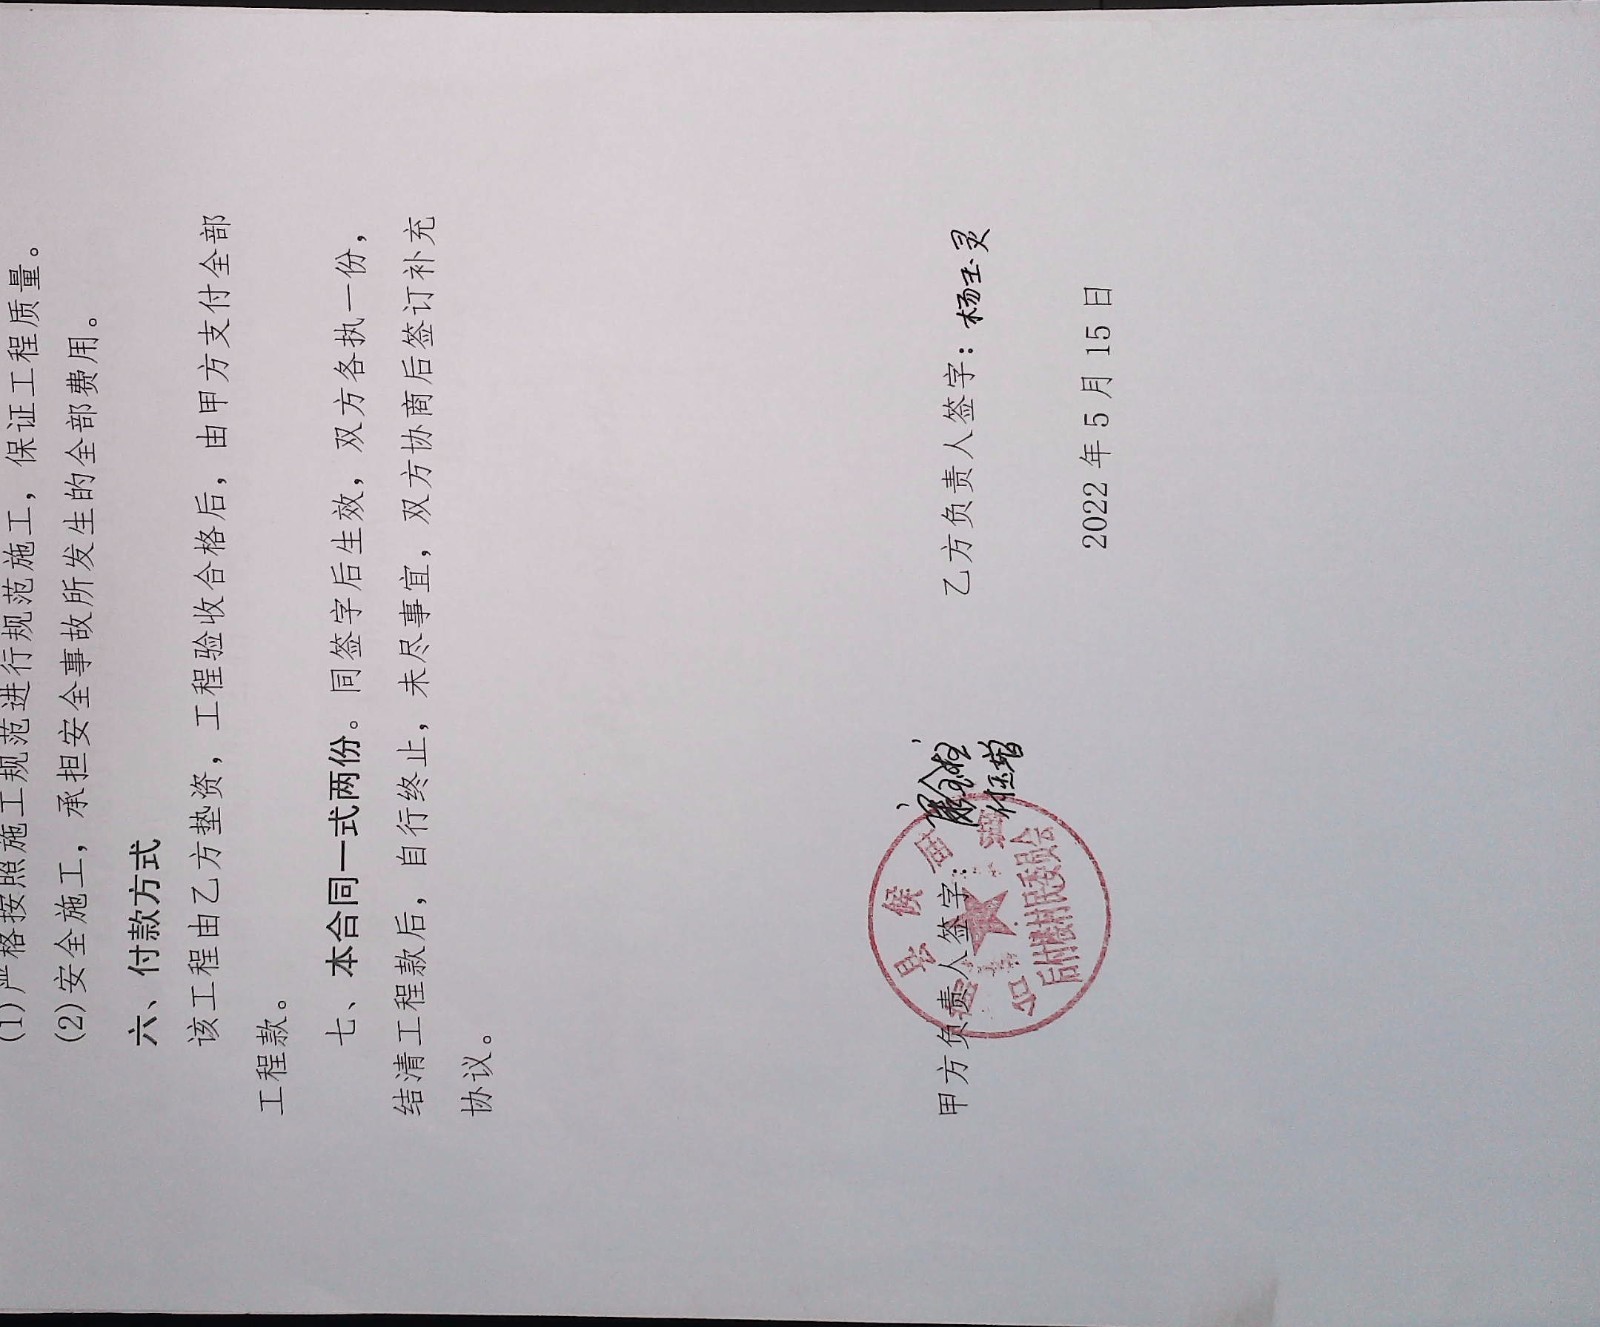 (1)严格按照施工规范进行规范施工，保证工程质量。
(2)安全施工，承担安全事故所发生的全部费用。
六、付款方式
该工程由乙方垫资，工程验收合格后，由甲方支付全部
工程款。
七、本合同一式两份。同签字后生效，双方各执一份，
结清工程款后，自行终止，未尽事宜，双方协商后签订补充
协议。
甲方负责人签字：
乙方负责人签字：杨玉灵
后付楼村村民委员会
2022 年 5 月 15 日